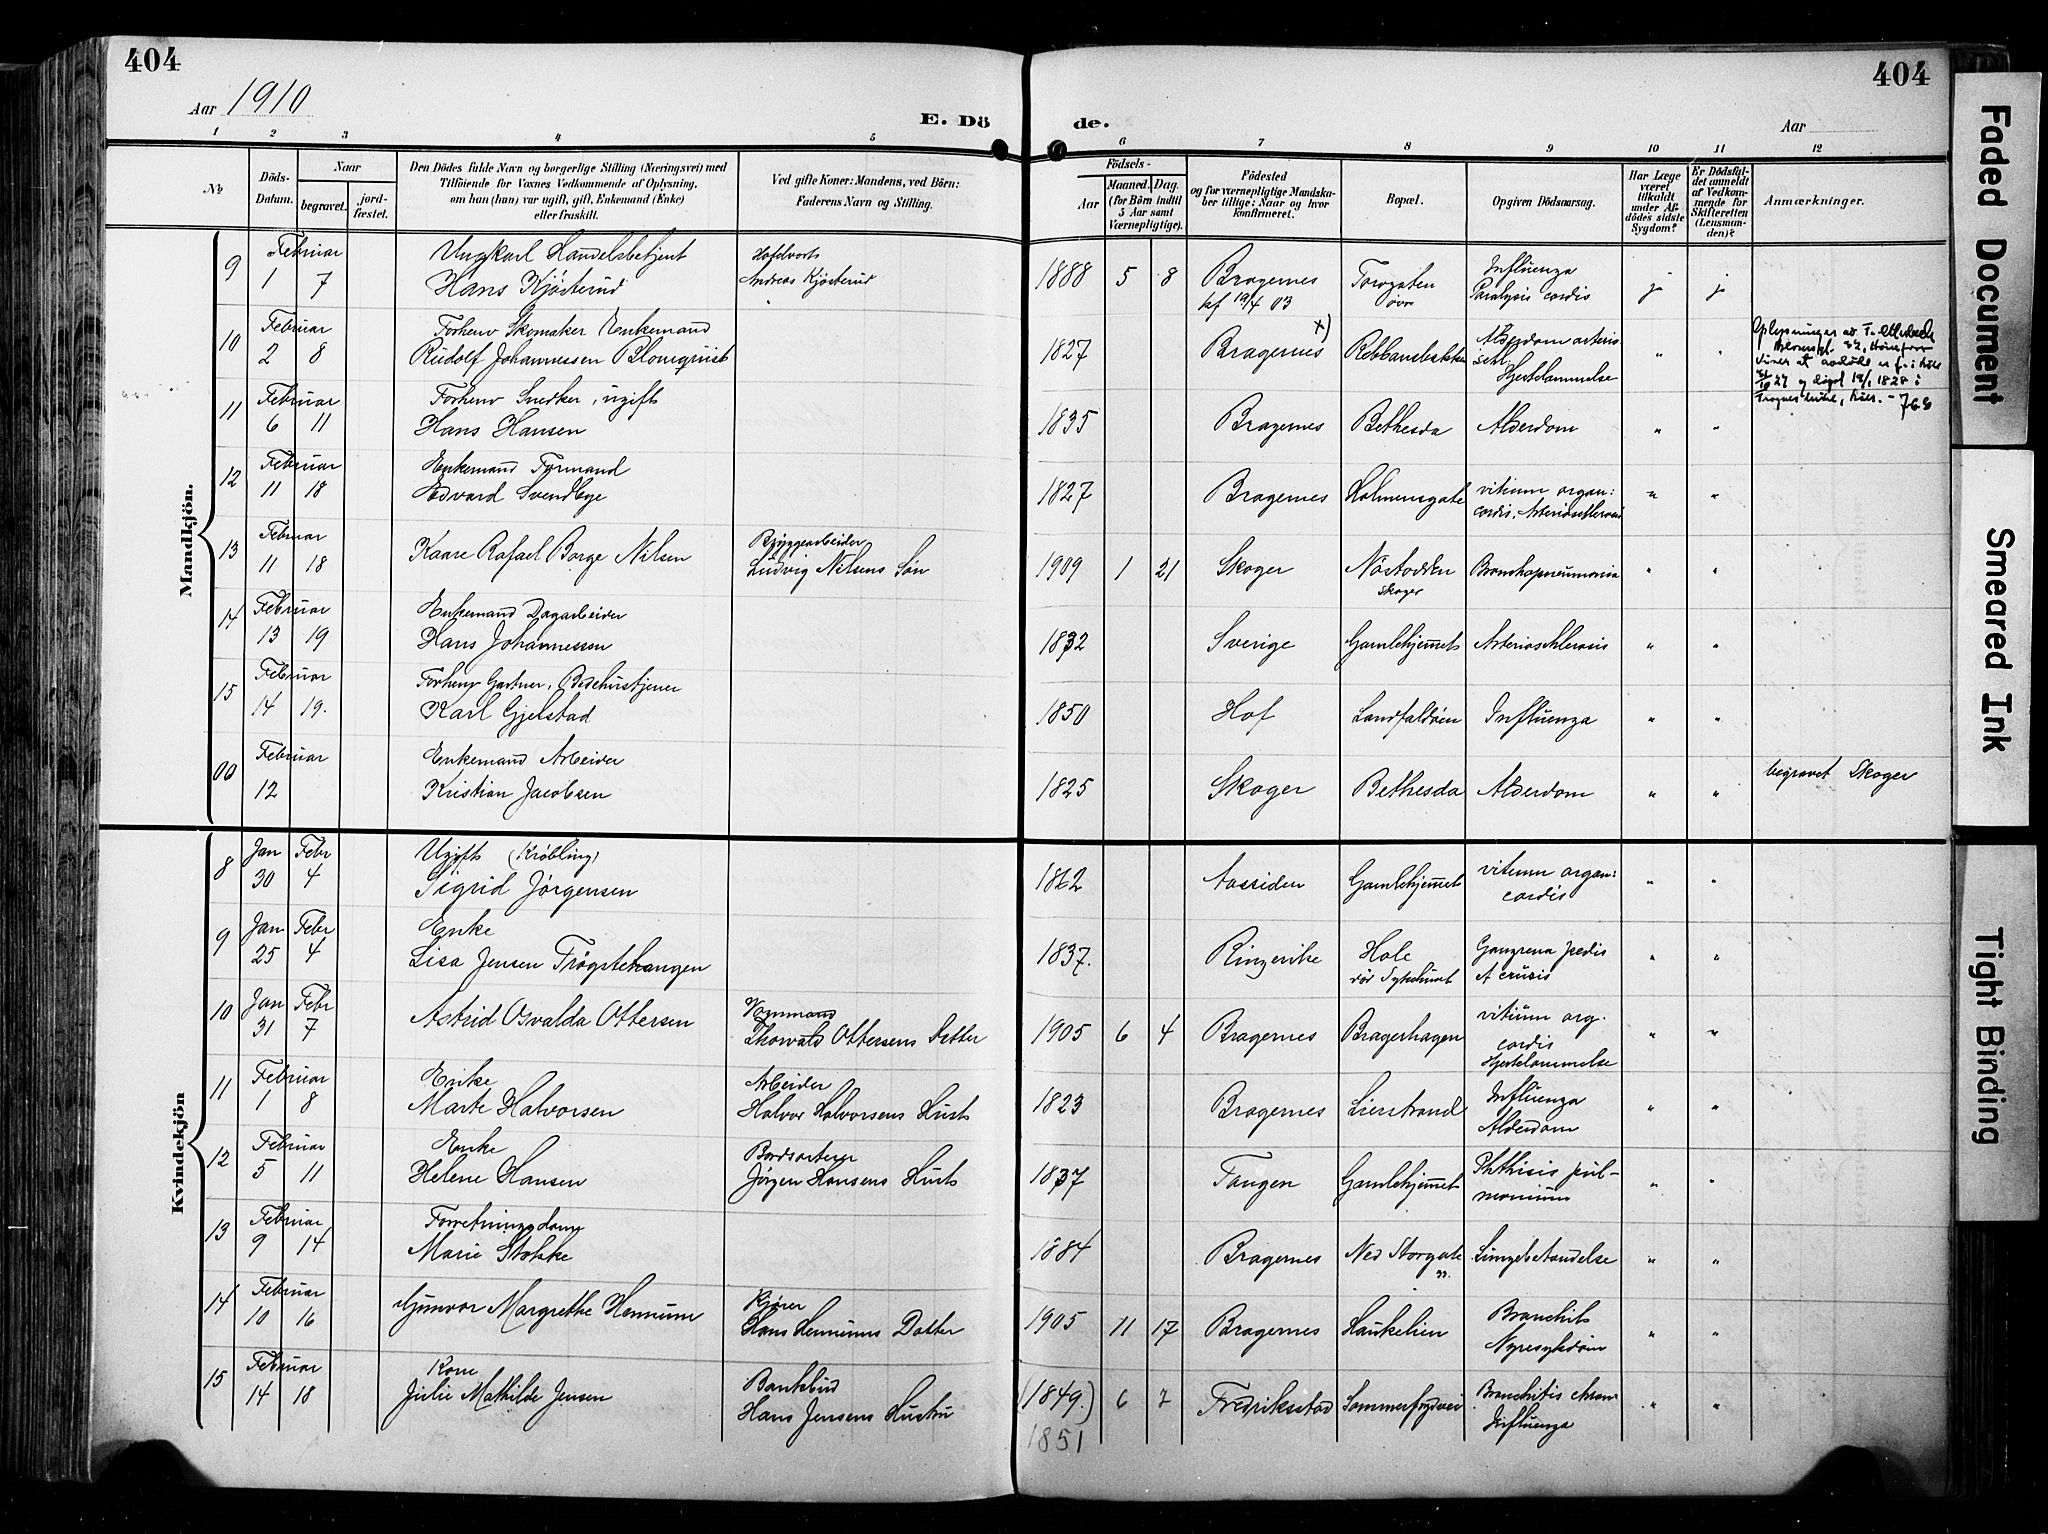 404
Aar 1910
E. Dö
de.
404
Aar
1 2 3 4 5 6 7 8 9 10 11 12
No
Döds-Datum.
Naar
begravet.
jord-fæstet.
Den Dödes fulde Navn og borgerlige Stilling (Næringsvei) med
Tilföiende for Voxnes Vedkommende af Oplysning,
om han (hun) var ugift, gift, Enkemand (Enke)
eller fraskilt.
Ved gifte Koner: Mandens, ved Börn:
Faderens Navn og Stilling.
Födsels-
Aar
Maaned. Dag.
(for Börn indtil
5 Aar samt
Værnepligtige).
Födested
og for værnepligtige Mandska-
ber tillige: Naar og hvor
konfirmeret.
Bopæl.
Opgiven Dödsaarsag.
Har Læge
været
tilkaldt
under Af-
dödes sidste
Sygdom?
Er Dödsfal-
det anmeldt
af Vedkom-
mende for
Skifteretten
(Lensman-
den)?
Anmærkninger.
Mandkjön.
9 Februar 1 7 Ungkarl Handelsbetjent
Hans Kjösterud
Andreas Kjösterud
1888 5 8 Bragernes
kf 19/4 03
Torvgaten
øvre
Influenza
Paralysis cordis
ja ja
10 Februar 2 8 Forhenv Skomaker Enkemand
Rudolf Johannessen Blomquist
1827 Bragernes x)
Alderdom
Hjertelammelse
" "
11 Februar 6 11 Forhenv Snedker, ugift
Hans Hansen
1835 Bragernes Bethesda Alderdom " "
12 Februar 11 18 Enkemand Formand
Edvard Svendbye
1827 Bragernes Holmensgate vitium organ:
cordis, Arteriosklerosis
" "
13 Februar 11 18 Kaare Rafael Borge Nilsen
Bryggearbeider
Ludvig Nilsens Søn
1909 1 21 Skoger Nöstodden
Skoger
Bronchopneumonia " "
14 Februar 13 19 Enkemand Dagarbeider
Hans Johannessen
1832 Sverige Gamlehjemmet Arteriosklerosis " "
15 Februar 14 19. Forhenv Gartner, Bedehustjener
Karl Gjelstad
1850 Hof Landfaldöen Influenza " "
00 Februar 12 Enkemand Arbeider
Kristian Jacobsen
1825 Skoger Bethesda Alderdom " " begravet Skoger
Kvindekjön
8 Jan 30 Febr 4 Ugift (Krøbling)
Sigrid Jørgensen
1862 Aassiden Gamlehjemmet vitium organ:
cordis
" "
9 Jan 25 Febr 4 Enke
Lisa Jensen
1837. Ringerike Hole
Gangrena pedis
" "
10 Jan 31 Febr 7 Astrid Osvalda Ottersen
Thorvald Ottersens Datter
1905 6 4 Bragernes Bragerhagen vitium org.
cordis
Hjertelammelse
" "
11 Februar 1 8 Enke
Marte Halvorsen
Arbeider
Halvor Halvorsens Hust
1823 Bragernes Lierstrand Influenza
Alderdom
" "
12 Februar 5 11 Enke
Helene Hansen
Jørgen Hansens Hust
1837 Tangen Gamlehjemmet Phthisis pul-
monum
" "
13 Februar 9 14 Forretningsdame
Marie Stokke
1884 Bragernes Ned Storgate
Lungebetændelse " "
14 Februar 10 16 Gunvor Margrethe Hennum
Kjører
Hans Hennums Datter
1905 11 17 Bragernes Haukelien Bronchit
Nyresykdom
" "
15 Februar 14 18 Kone
Julie Mathilde Jensen
Bankbud
Hans Jensens Hustru
(1849.)
1851
6 7 Fredriksstad Sommerfrydvei Bronchitis chron
Influenza
" "
Faded Document
Smeared Ink
Tight Binding